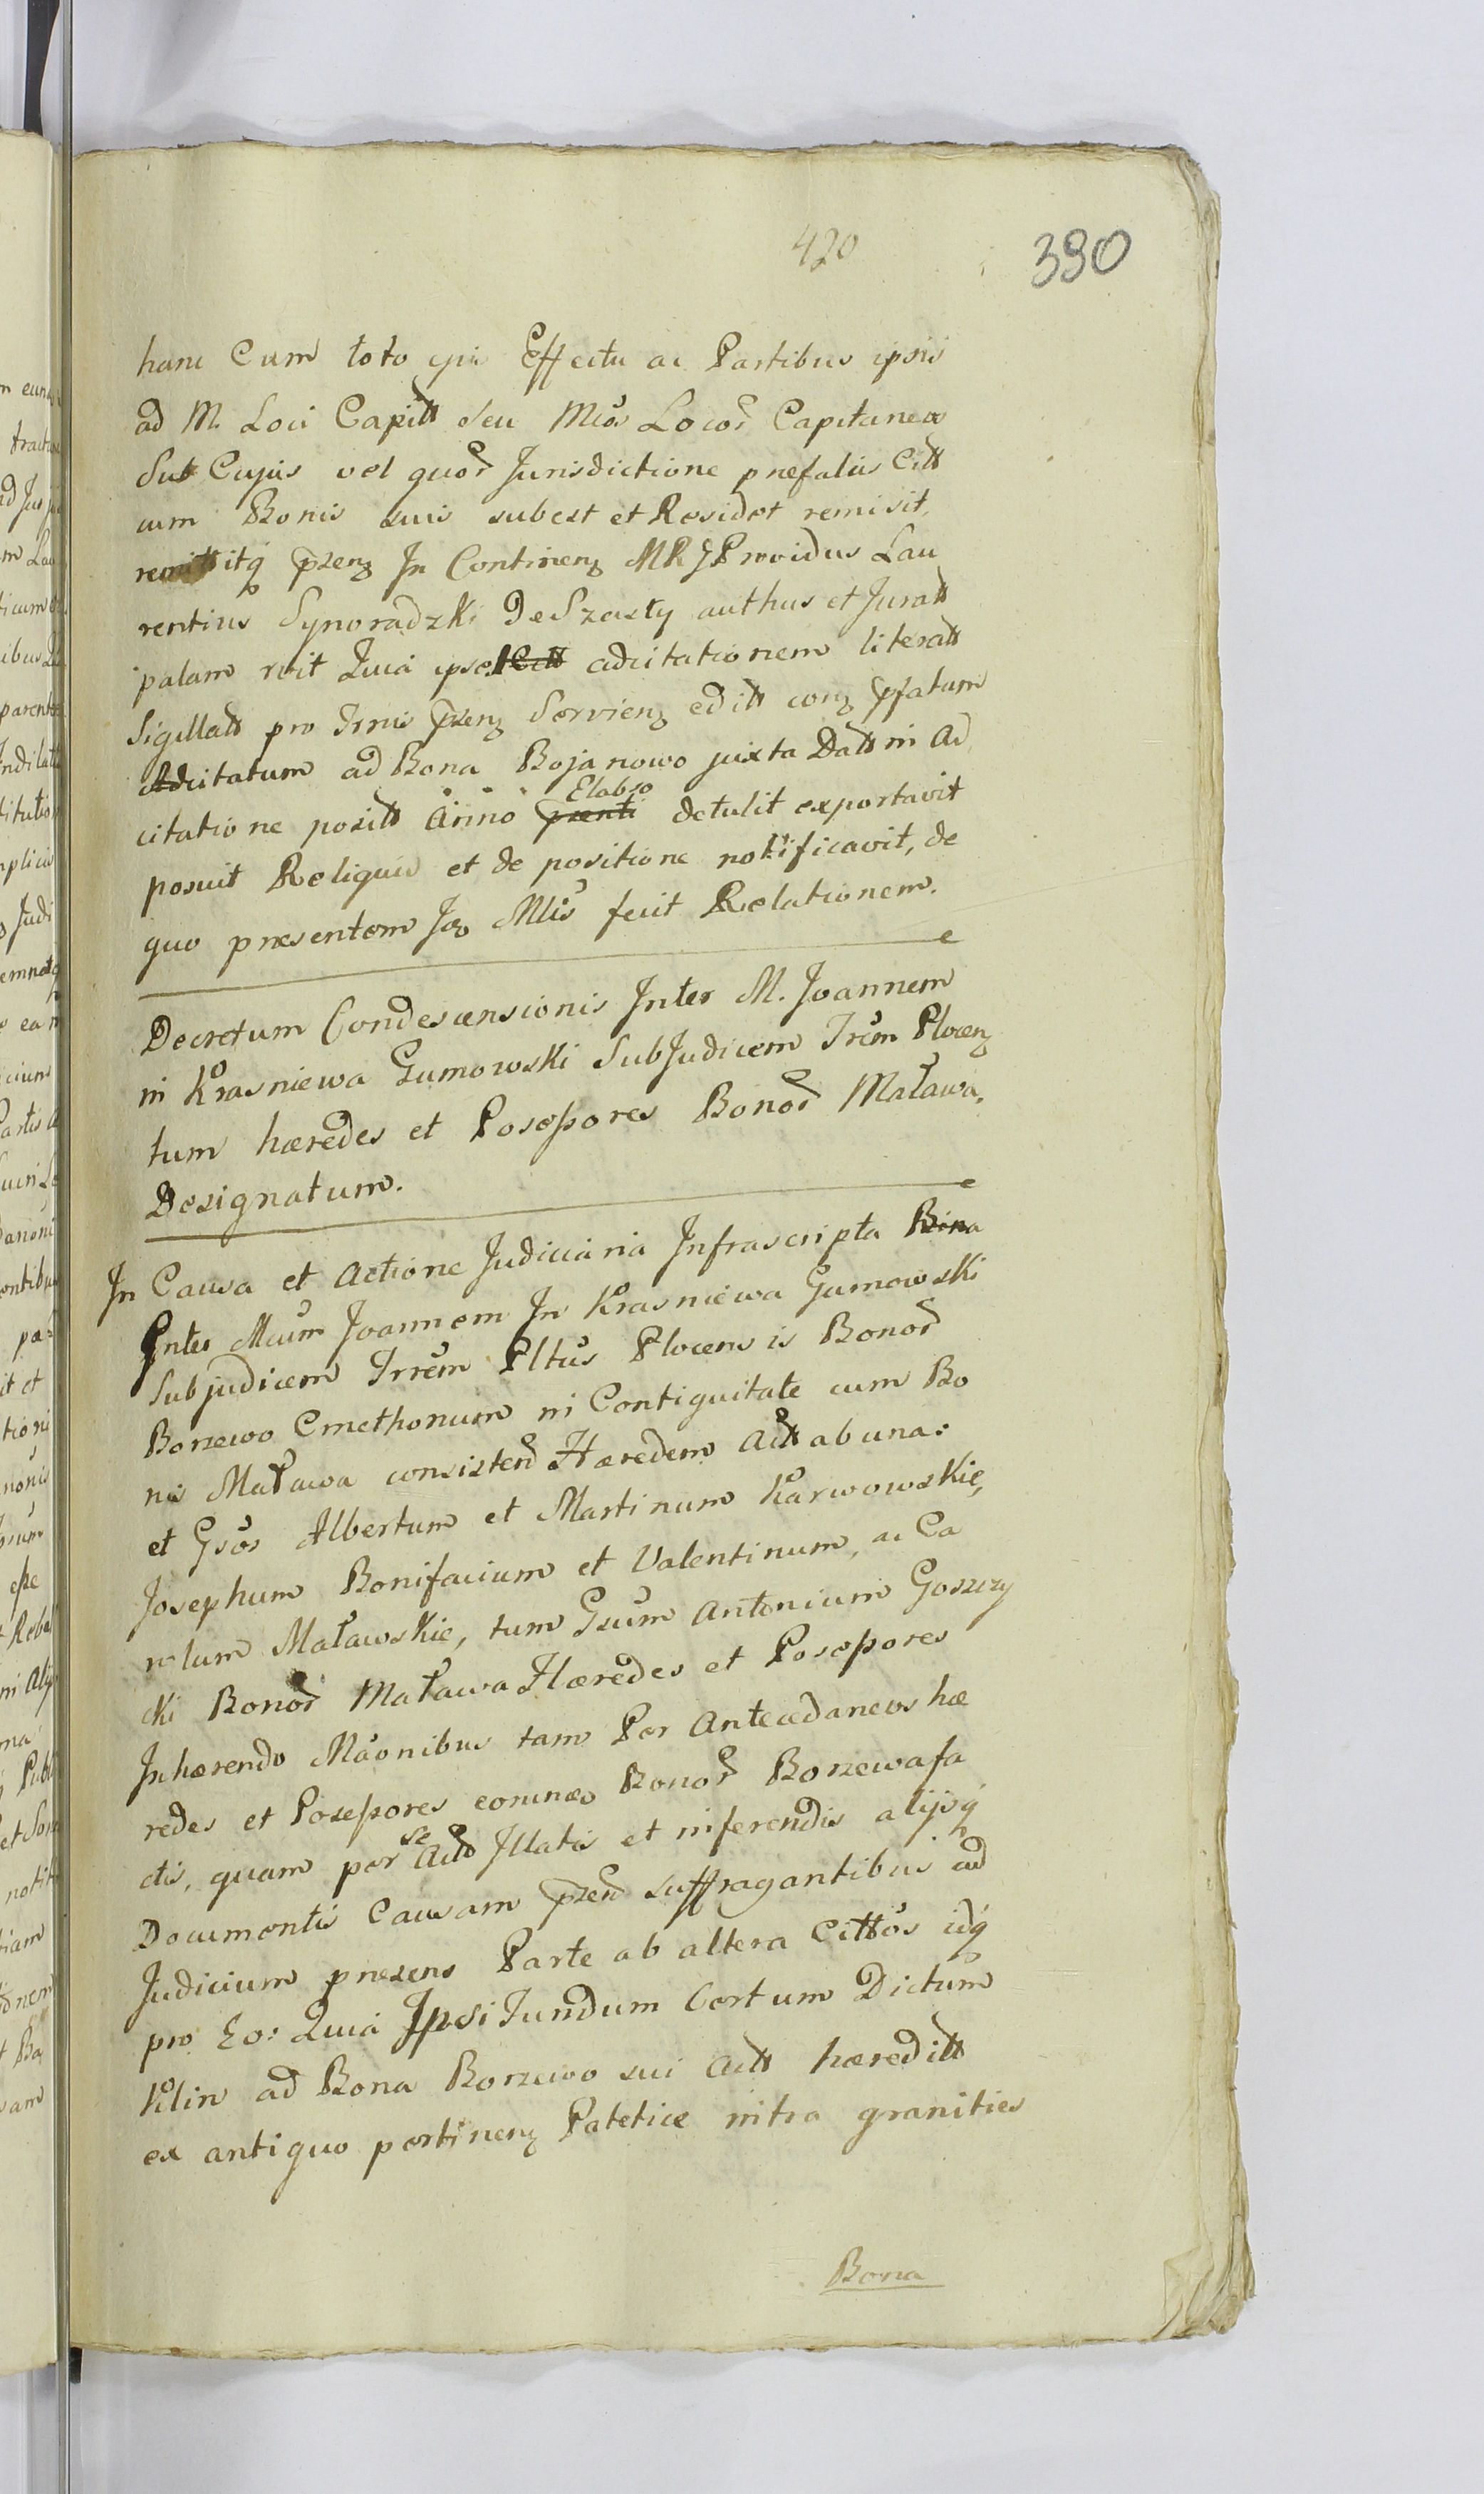 420
390
hanc Cum toto ejus Effectu ac Partibus ipsis
ad M. Loci Capitt seu Mcos Locor Capitaneos
Sub Cujus vel quor Jurisdictione praefatus Citt
cum Bonis suis subest et Residet remisit,
remittitq przenz In Continenz MRJ Providus Lau
rentius Synoradzki De Szczsty authus et Juratt
palam rcit Quia ipse adcitationem literatt
Sigillatt pro Trnis przenz Servienz editt conz pfatum
Adcitatum ad Bona Bojanowo juxta Datt in Ad
citatione positt Anno prenti Elabso detulit exportavit
posuit Reliquit et de positione notificavit, de
quo praesentem Jgo Mlis fecit Relationem.
Decretum Condescensionis Inter M. Joannem
in Krasniewa Gumowski SubJudicem Trem Plocenz
tum haeredes et Possessores Bonor Maława,
Designatum.
In Causa et Actione Judiciaria Infrascripta
Inter Mcum Joannem In Krasniewa Gumowski
Subjudicem Trrem Pltus Plocensis Bonor
Borzewo Cmethonum in Contiguitate cum Bo
nis Maława consistend Haeredem Actt ab una:
et Gsos Albertum et Martinum Karwowskie,
Josephum Bonifacium et Valentinum, ac Ca
rolum Maławskie, tum Gsum Antonium Goszczy
cki Bonor Maława Haeredes et Possessores
Inhaerendo Maonibus tam Per Antecedaneos hae
redes et Possessores eornnes Bonor Borzewa fa
ctis, quam per se Actt Illatis et inferendis alijsq
Documentis Causam przen suffragantibus ad
Judicium praesens Parte ab altera Cittos idq
pro Eo: Quia Ipsi Fundum Certum Dictum
Klin ad Bona Borzewo sui Actt haereditt
ex antiquo pertinenz Patetice intra granities
Bona